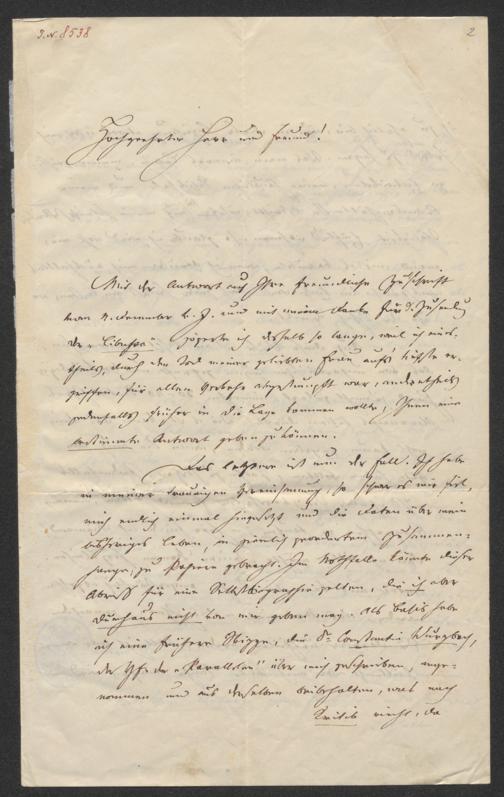 I.N. 8538
2
Hochgeehrter Herr und Freund!
Mit der Antwort auf Ihre freundliche Zuschrift
vom 4. Dezember v. J. und mit meinem Danke für d. Zusendg
der "Libussa" zögerte ich deßhalb so lange, weil ich eines-
theils, durch den Tod meiner geliebten Frau auf's tiefste er-
griffen, für allen Verkehr abgestumpft war, anderntheils
jedenfalls früher in die Lage kommen wollte, Ihnen eine
bestimmte Antwort geben zu können.
Das letztere ist nun der Fall. Ich habe
in meiner traurigen Vereinsamung, so schwer es mir fiel,
mich endlich einmal hingesetzt und die Daten über mein
bisheriges Leben, in ziemlich geordnetem Zusammen-
hange, zu Papiere gebracht. Im Nothfalle könnte dieser
Abriß für eine Selbstbiographie gelten, die ich aber
durchaus nicht von mir geben mag. Als Basis habe
ich eine frühere Skizze, die Dr. Constantin Wurzbach,
der Vf. der "Parallelen" über mich geschrieben, ange-
nommen und aus derselben beibehalten, was nach
Kritik riecht, da